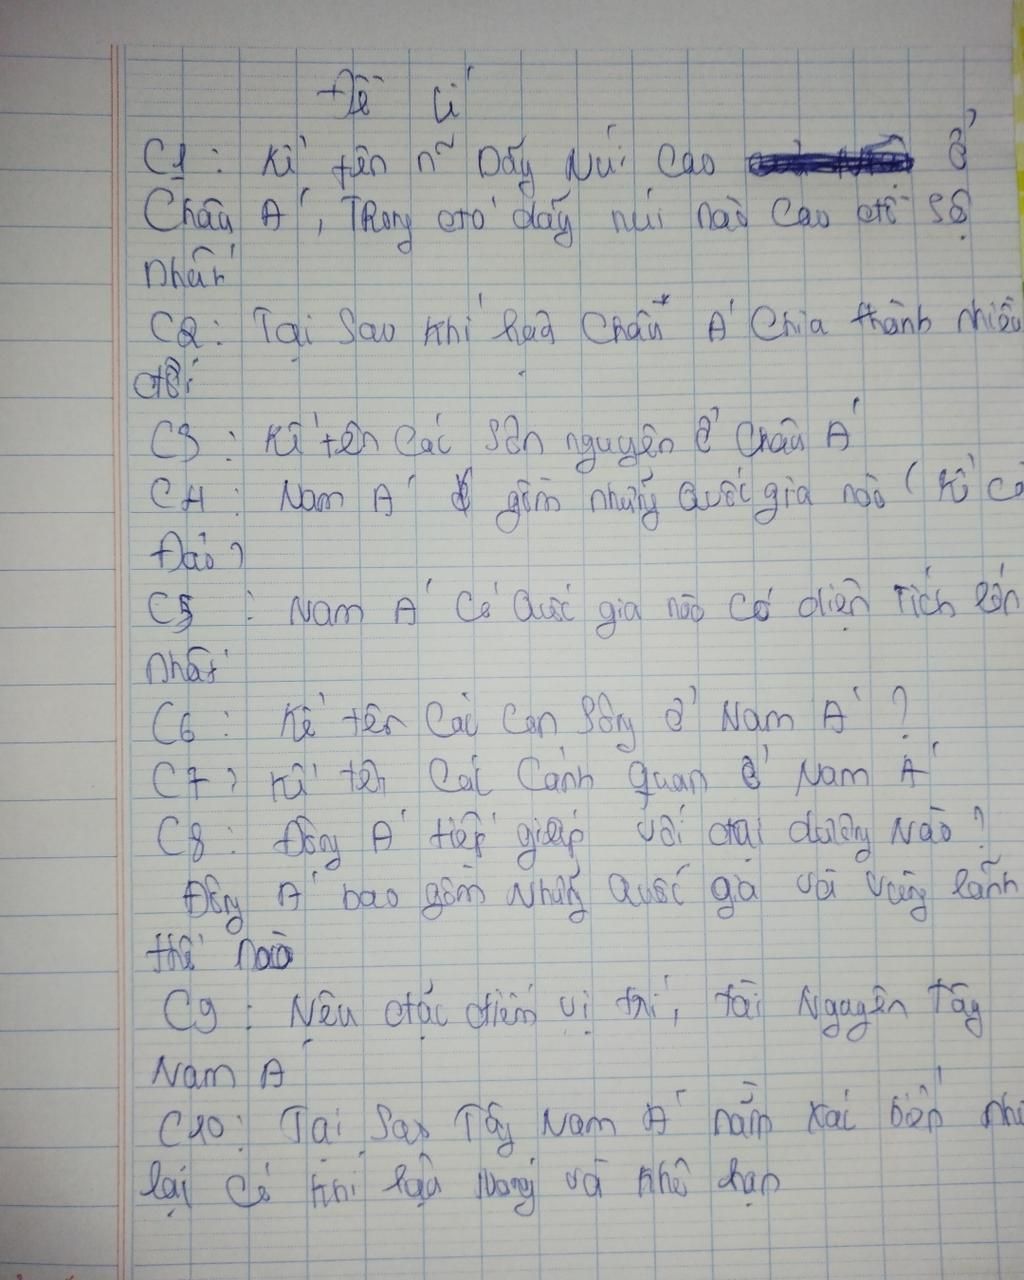 Đề Lí
C1: Kể tên n~ Dãy Núi Cao ở
Châu Á, Trong đó dãy núi nào Cao đồ sộ
nhất
C2: Tại Sao Khí hậu Châu Á Chia thành nhiều
đới
C3: Kể tên Các Sơn nguyên ở Châu Á
C4: Nam Á gồm những Quốc gia nào (Kể cả
Đảo)
C5: Nam Á Có Quốc gia nào có diện Tích lớn
nhất
C6: Kể tên Các Con Sông ở Nam Á?
C7) Kể tên Các Cảnh quan ở Nam Á
C8: Đông Á tiếp giáp với đại dương Nào?
Đông Á bao gồm Những Quốc gia và vùng lãnh
thổ nào
C9: Nêu đặc điểm vị trí, tài Nguyên Tây
Nam Á
C10: Tại Sao Tây Nam Á nằm sát biển như
lại Có khí hậu nóng và khô hạn